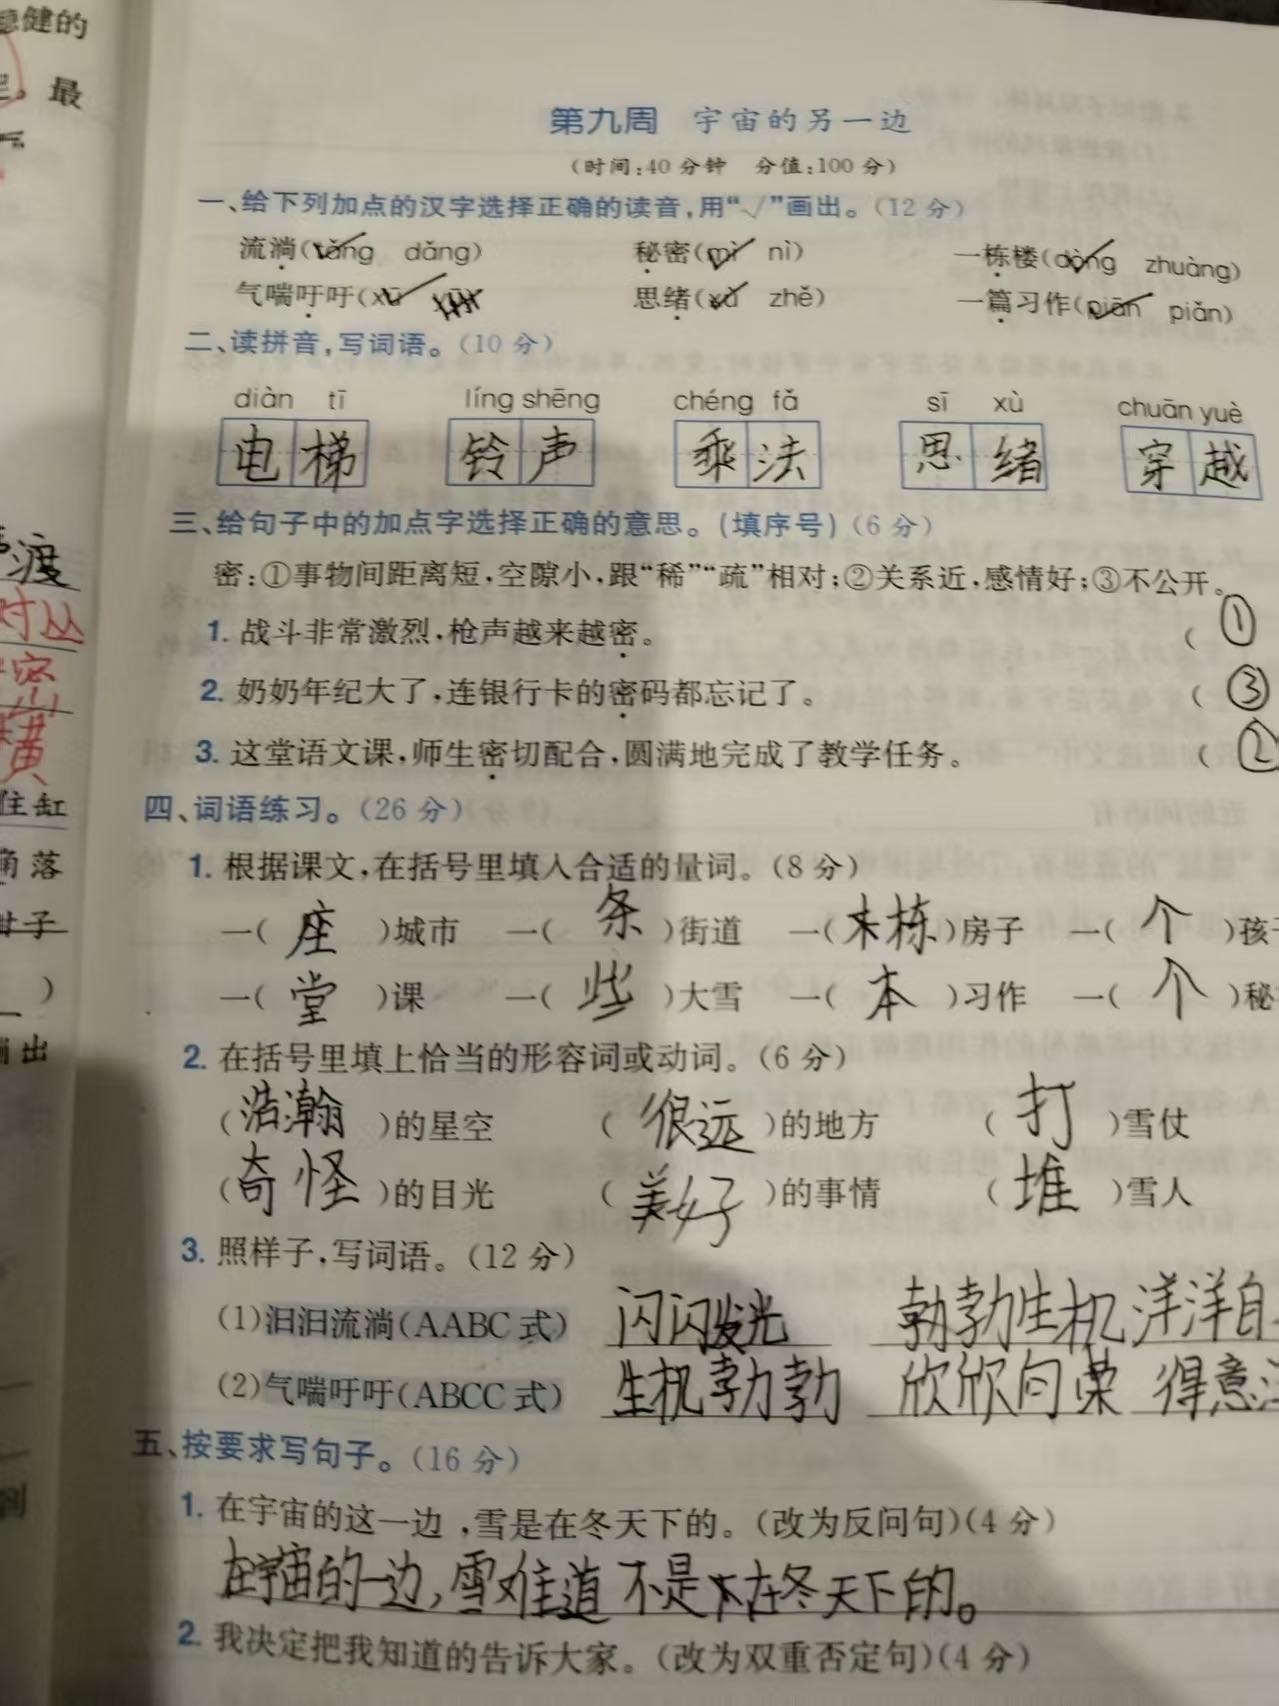 稳健的
最
第九周 宇宙的另一边
(时间:40分钟 分值:100分)
一、给下列加点的汉字选择正确的读音,用“√”画出。(12分)
流淌(tǎng dǎng) 秘密(mì nì) 一栋楼(dòng zhuàng)
气喘吁吁(xū ) 思绪(xù zhě) 一篇习作(piān piǎn)
二、读拼音,写词语。(10分)
diàn tī líng shēng chéng fǎ sī xù chuān yuè
电梯 铃声 乘法 思绪 穿越
三、给句子中的加点字选择正确的意思。(填序号)(6分)
密:①事物间距离短,空隙小,跟“稀”“疏”相对;②关系近,感情好;③不公开。
1. 战斗非常激烈,枪声越来越密。 (①
2. 奶奶年纪大了,连银行卡的密码都忘记了。 (③
3. 这堂语文课,师生密切配合,圆满地完成了教学任务。 (②
四、词语练习。(26分)
1. 根据课文,在括号里填入合适的量词。(8分)
一(座)城市 一(条)街道 一(木栋)房子 一(个)孩
一(堂)课 一(些)大雪 一(本)习作 一(个)秘
2. 在括号里填上恰当的形容词或动词。(6分)
(浩瀚)的星空 (很远)的地方 (打)雪仗
(奇怪)的目光 (美好)的事情 (堆)雪人
3. 照样子,写词语。(12分)
(1)汩汩流淌(AABC式) 闪闪发光 勃勃生机 洋洋自
(2)气喘吁吁(ABCC式) 生机勃勃 欣欣向荣 得意
五、按要求写句子。(16分)
1. 在宇宙的这一边,雪是在冬天下的。(改为反问句)(4分)
在宇宙的一边,雪难道不是在冬天下的。
2. 我决定把我知道的告诉大家。(改为双重否定句)(4分)
渡
对丛
密
横
住缸
角落
甘子
)
出
到